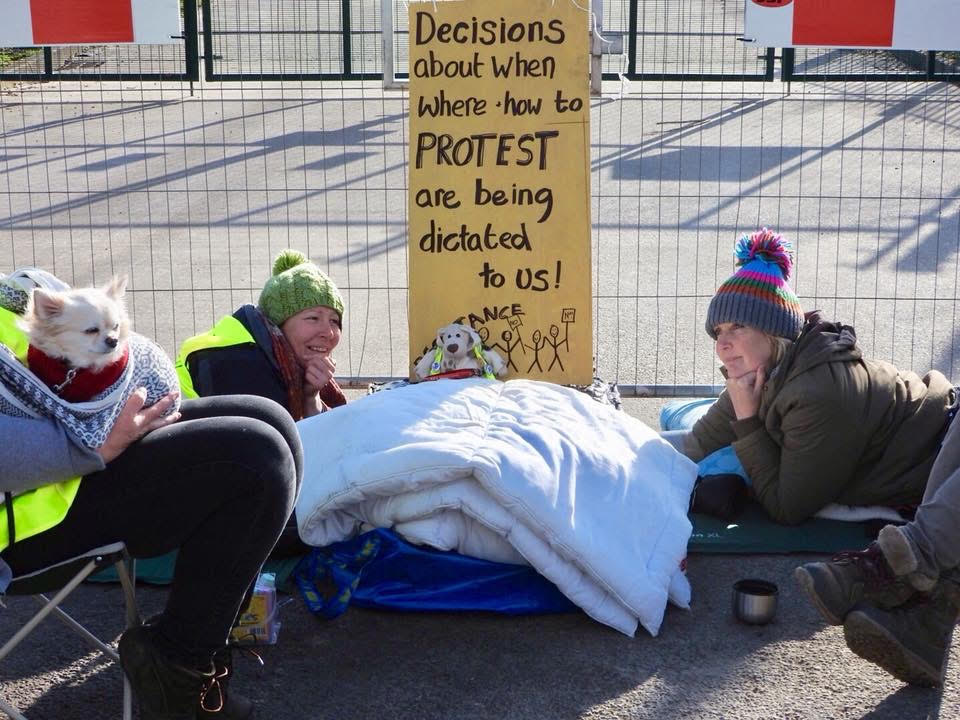 Decisions
about when
where + how to
PROTEST
are being
dictated
to us!
NO
XL